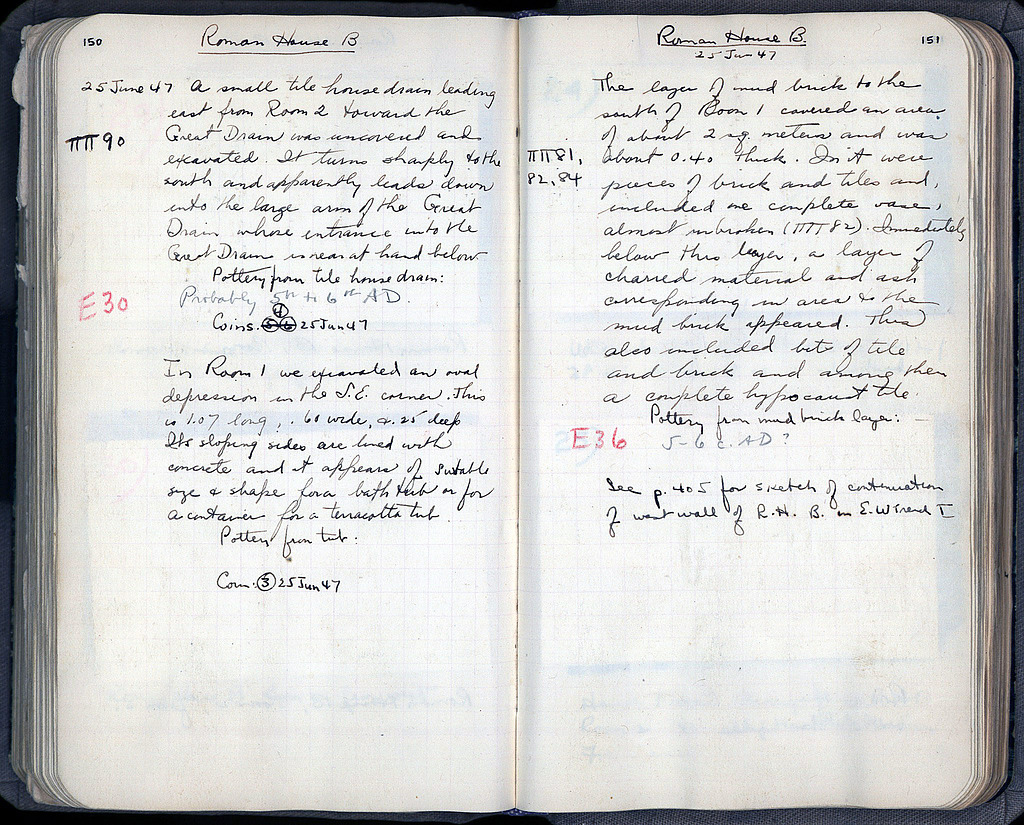 150
Roman House B
25 June 47 A small tile house drain leading
east from Room 2 toward the
ΠΠ 90
Great Drain was uncovered and
excavated. It turns sharply to the
south and apparently leads down
into the large arm of the Great
Drain whose entrance into the
Great Drain is near at hand below
Pottery from tile house drain:
E30
Probably 5th to 6th AD.
4
Coins. 5 6 25 Jun 47
In Room 1 we excavated an oval
depression in the S.E. corner. This
is 1.07 long, .60 wide, & .25 deep
Its sloping sides are lined with
concrete and it appears of suitable
size & shape for a bath tub or for
a container for a terracotta tub.
Pottery from tub:
Coin: 3 25 Jun 47
151
Roman House B.
25 Jun 47
The layer of mud brick to the
south of Room 1 covered an area
of about 2 sq. meters and was
ΠΠ 81,
82, 84
about 0.40 thick. In it were
pieces of brick and tiles and,
included one complete vase,
almost unbroken (ΠΠ 82). Immediately
below this layer, a layer of
charred material and ash
corresponding in area to the
mud brick appeared. This
also included bits of tile
and brick and among them
a complete hypocaust tile.
Pottery from mud brick layer: —
E36
5-6 c. AD?
See p. 405 for sketch of continuation
of west wall of R.H. B. in E.W Trench I